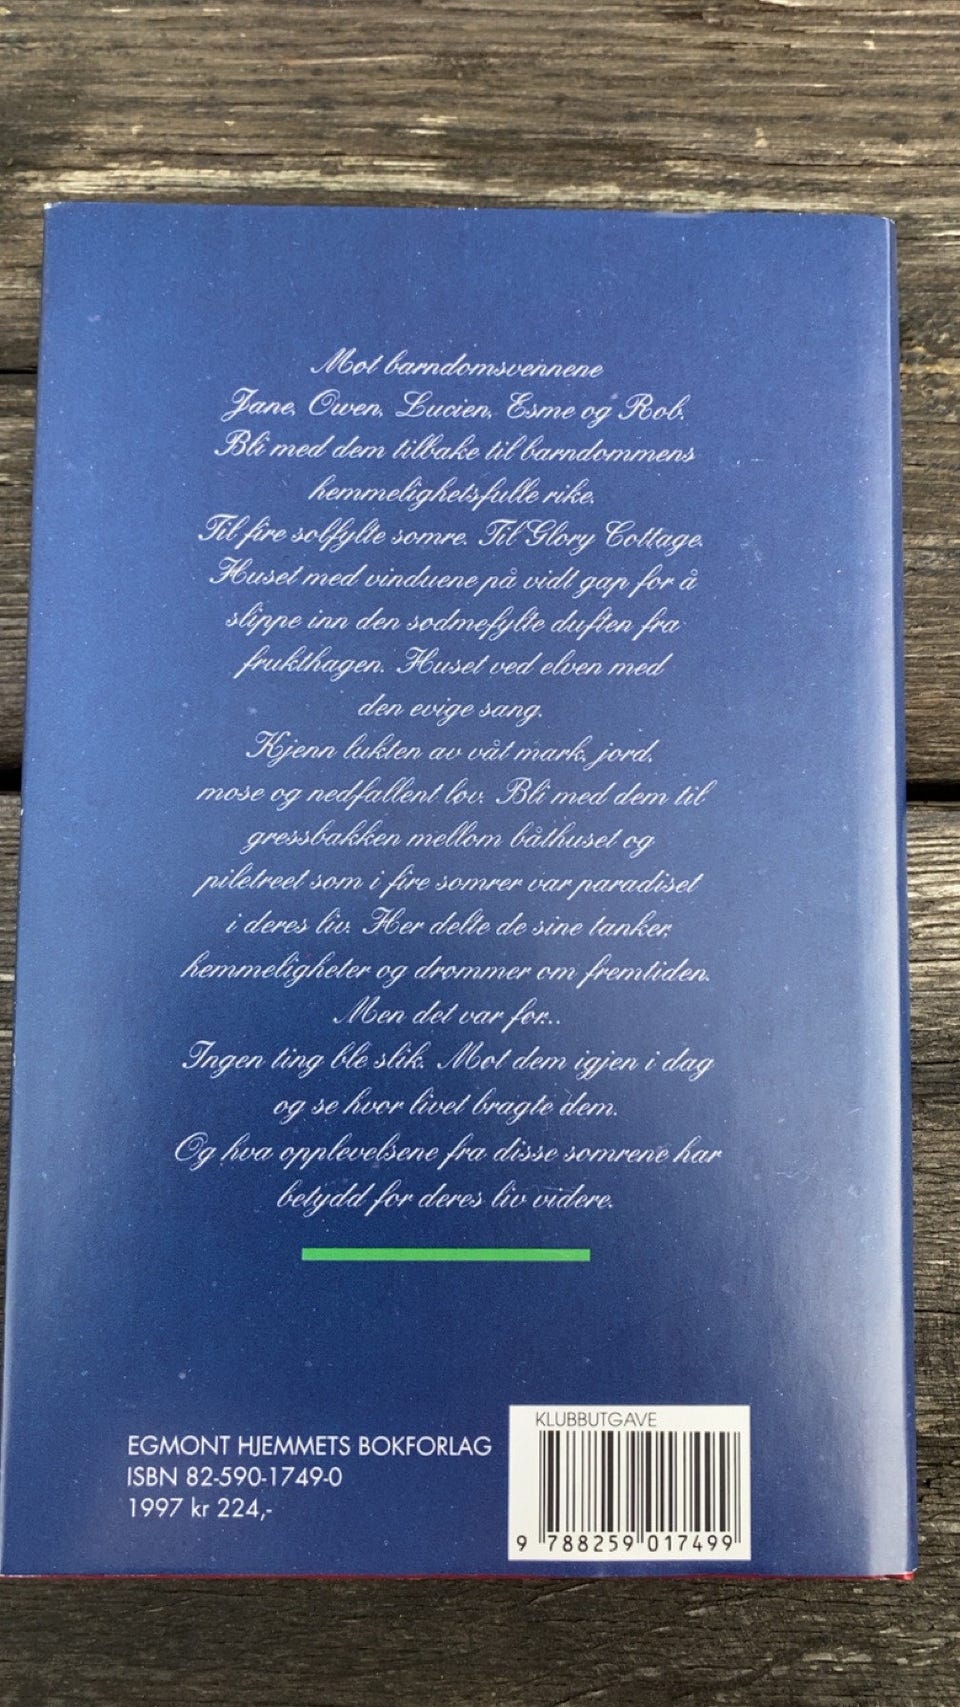 Møt barndomsvennene
Jane, Owen, Lucien, Esme og Rob.
Bli med dem tilbake til barndommens
hemmelighetsfulle rike.
Til fire solfylte somre. Til Glory Cottage.
Huset med vinduene på vidt gap for å
slippe inn den sødmefylte duften fra
frukthagen. Huset ved elven med
den evige sang.
Kjenn lukten av våt mark, jord,
mose og nedfallent løv. Bli med dem til
gressbakken mellom båthuset og
piletreet som i fire somrer var paradiset
i deres liv. Her delte de sine tanker,
hemmeligheter og drømmer om fremtiden.
Men det var før...
Ingen ting ble slik. Møt dem igjen i dag
og se hvor livet bragte dem.
Og hva opplevelsene fra disse somrene har
betydd for deres liv videre.
EGMONT HJEMMETS BOKFORLAG
ISBN 82-590-1749-0
1997 kr 224,-
KLUBBUTGAVE
9 788259 017499